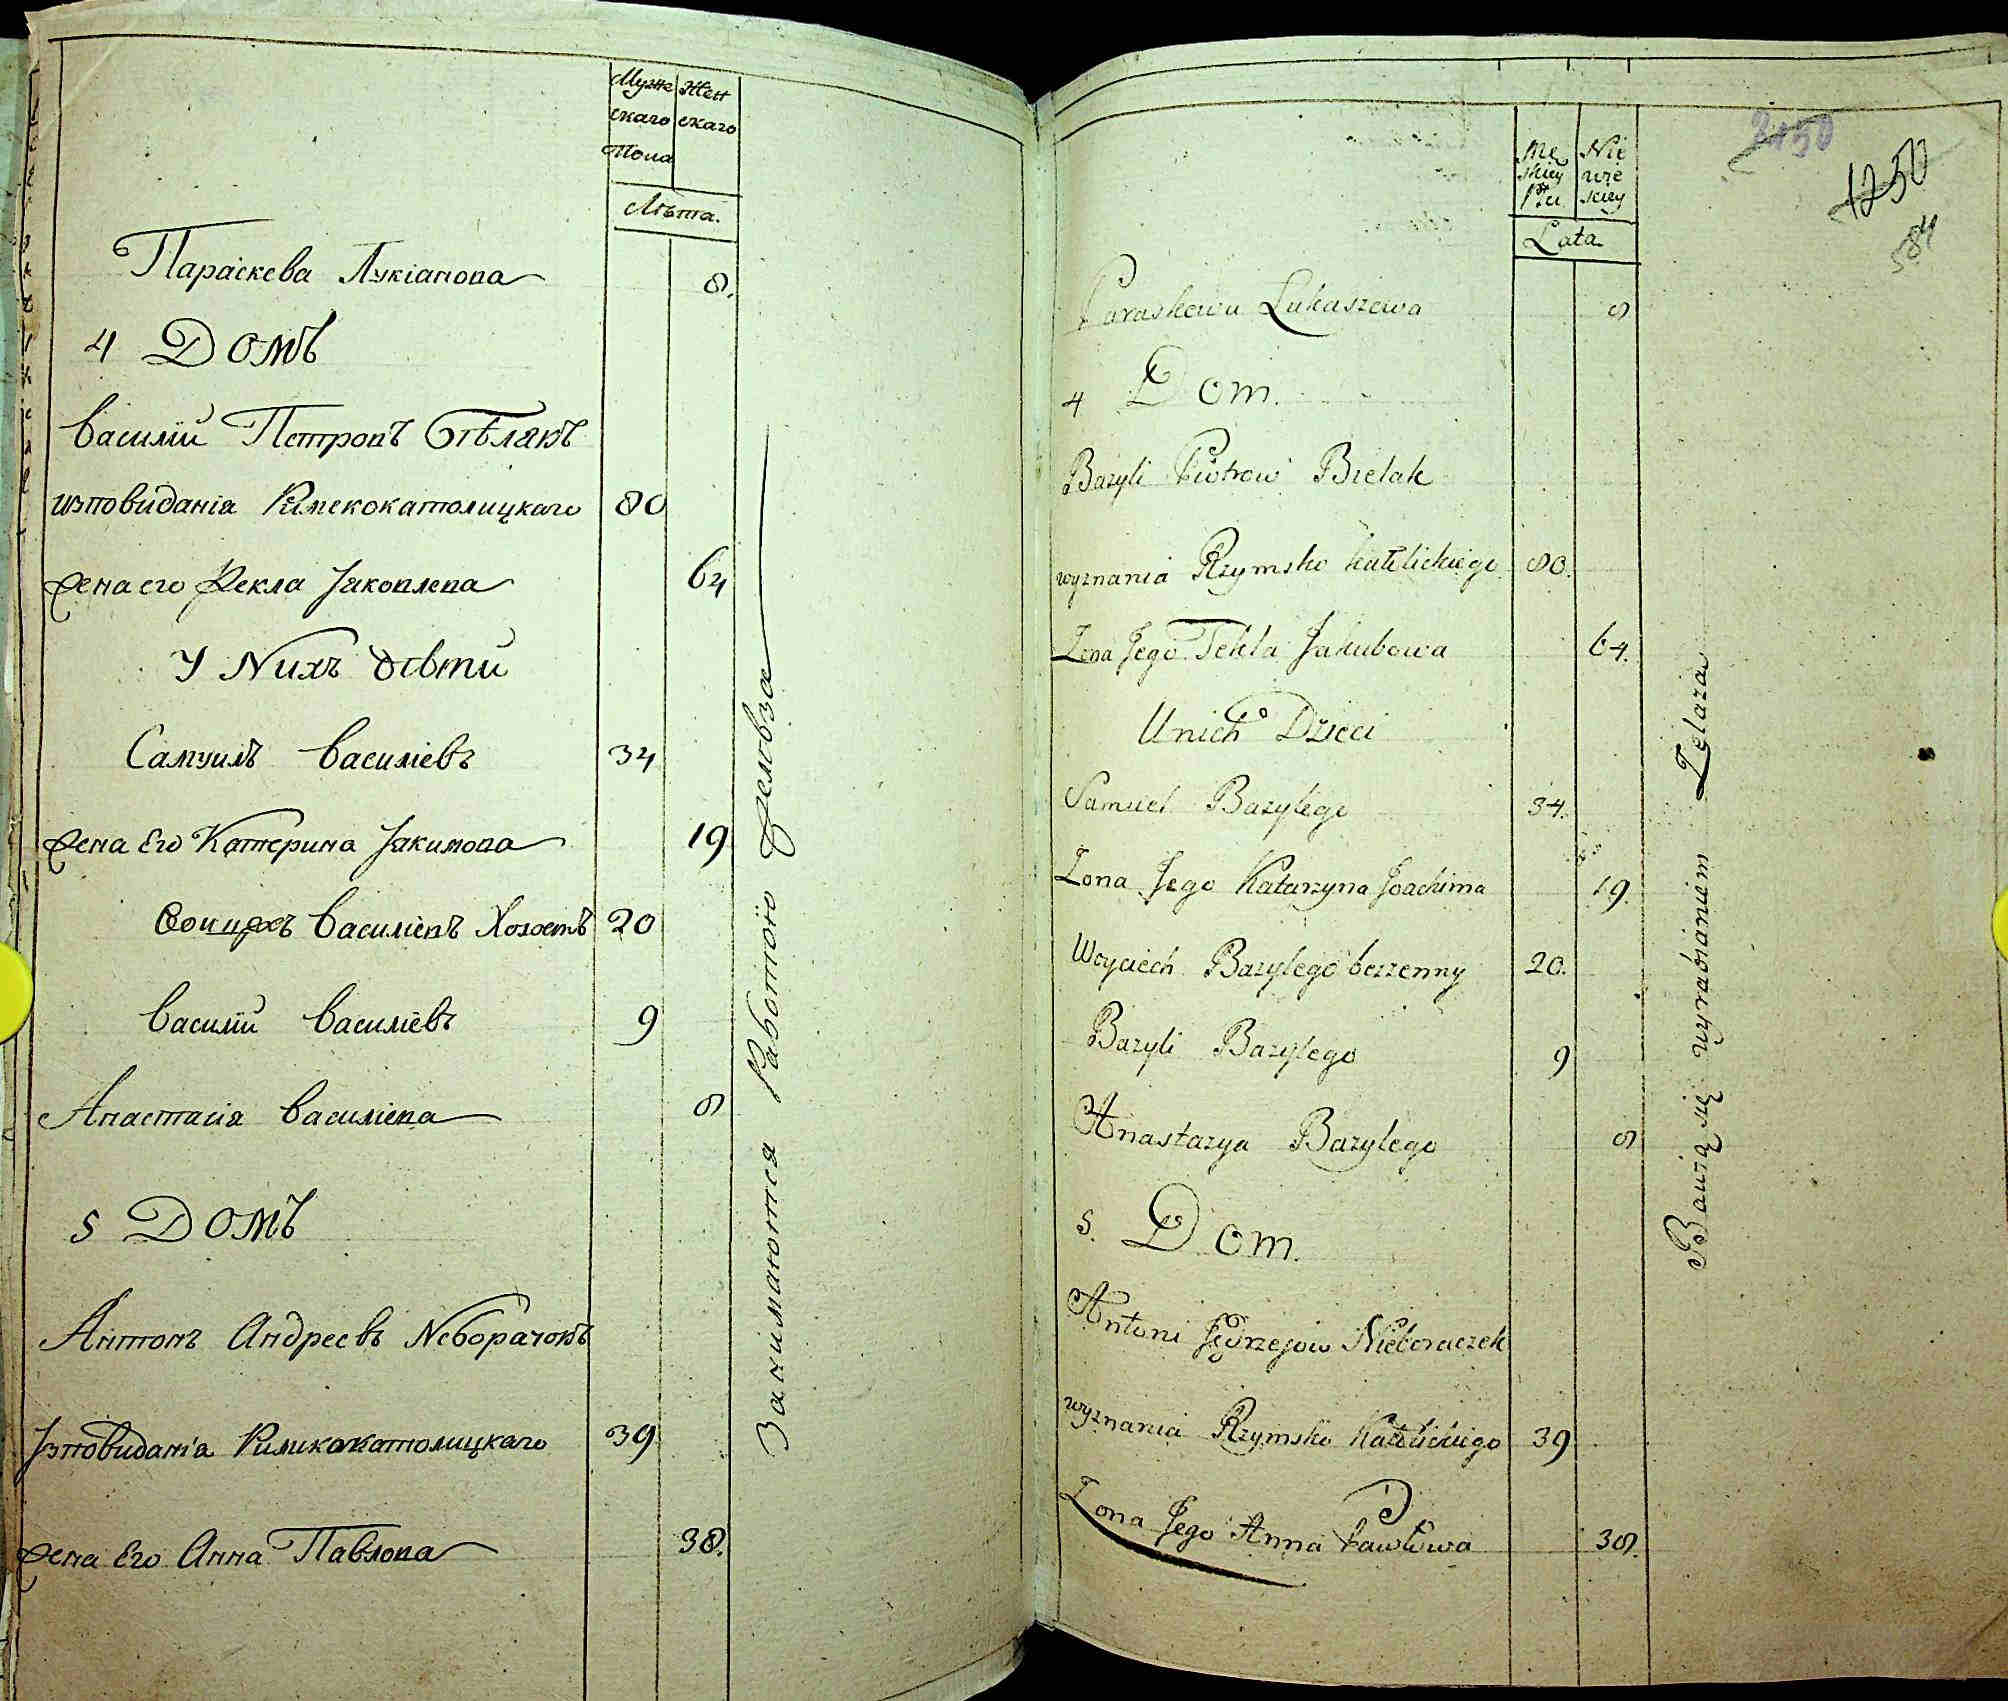 Муже Жен
скаго скаго
Пола
Лѣта.
Параскева Лукіанова 8.
4 Домъ
Василій Петровъ Бѣлякъ
изповиданія Римскокатолицкаго 80
Жена его Фекла Јаковлева 64
У Nихъ дѣти
Самуилъ Василіевъ 34
Жена Его Катерина Јакимова 19
Воицехъ Василіевъ Холостъ 20
Василій Василіевъ 9
Анастасія Василіева 8
5 Домъ
Антонъ Андреевъ Nеборачокъ
Јзповиданіа Римскокатолицкаго 39
Жена Его Анна Павлова 38.
Занимаются Работою Желѣза
Mę Nie
skiey wie
Płci skiey
Lata
1250
584
Paraskewa Łukaszewa 8
4 Dom.
Bazyli Piotrow Bielak
wyznania Rzymsko katolickiego 80.
Zona Jego Tekla Jakubowa 64.
U nich Dzieci
Samuel Bazylego 34.
Zona Jego Katarzyna Joachima 19.
Woyciech Bazylego bezzenny 20.
Bazyli Bazylego 9
Anastazya Bazylego 8
5. Dom.
Antoni Jędrzejow Nieboraczek
wyznania Rzymsko Katolickiego 39
Zona Jego Anna Pawłowa 38.
Bawią się wyrabianiem Zelaza